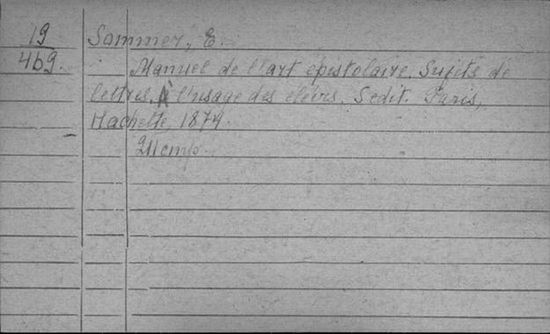 19
469.
Sommer, E.
Manuel de l'art épistolaire. Sujets de
lettres, à l'usage des élèves. 5 edit. Paris,
Hachette, 1879.